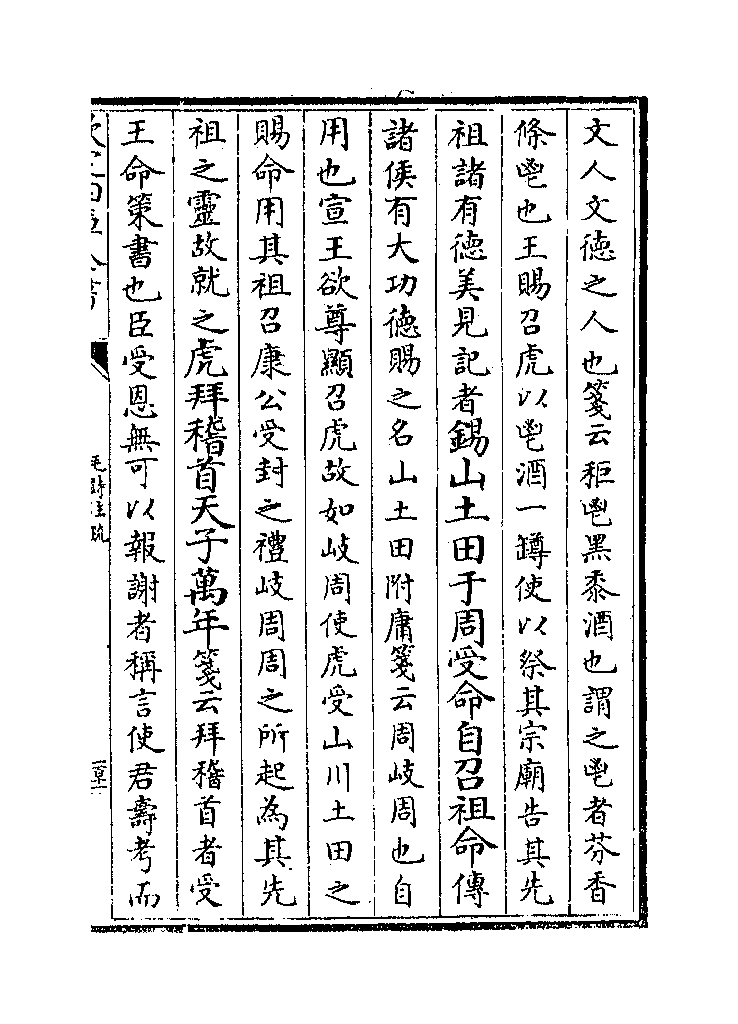 文人文徳之人也箋云秬鬯黑黍酒也謂之鬯者芬香
條鬯也王賜召虎以鬯酒一罇使以祭其宗廟告其先
祖諸有徳美見記者錫山土田于周受命自召祖命傳
諸侯有大功徳賜之名山土田附庸箋云周岐周也自
用也宣王欲尊顯召虎故如岐周使虎受山川土田之
賜命用其祖召康公受封之禮岐周周之所起為其先
祖之靈故就之虎拜稽首天子萬年箋云拜稽首者受
王命策書也臣受恩無可以報謝者稱言使君壽考而
欽定四庫全書
毛詩注疏